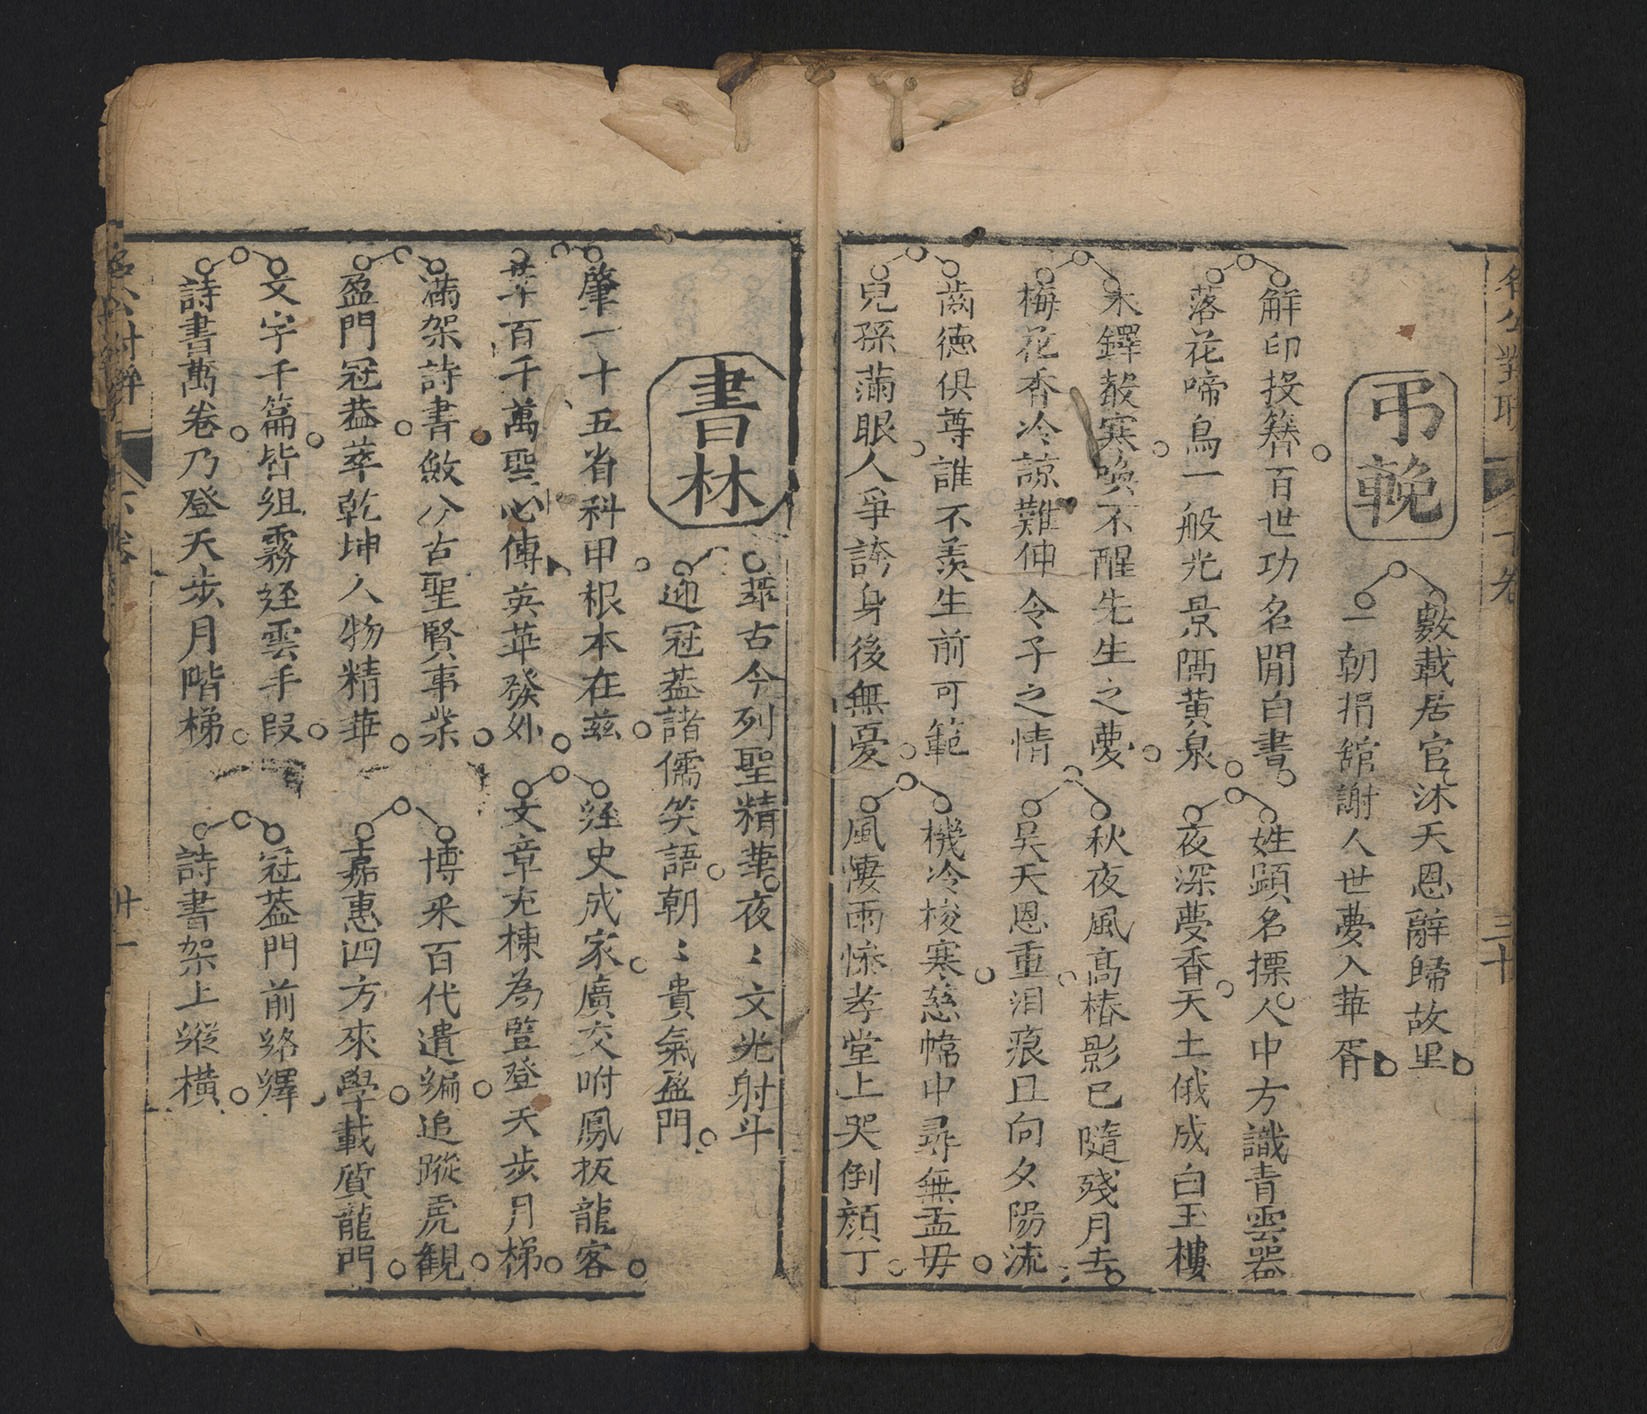 名公對聯
下卷
三十
弔輓
數載居官沐天恩辭歸故里
一朝捐舘謝人世夢入華胥
解印投簪百世功名閒白書
姓顕名摽人中方識青雲器
落花啼鳥一般光景隔黄泉
夜深夢香天土俄成白玉樓
木鐸聲寒喚不醒先生之夢
秋夜風高椿影已隨殘月去
梅花香冷諒難伸令子之情
吴天恩重泪痕且向夕陽流
齒德俱尊誰不羡生前可範
機冷梭寒慈幃中尋無孟毋
兒孫滿眼人爭誇身後無憂
風凄雨慘孝堂上哭倒顔丁
書林
萃古今列聖精華夜〻文光射斗
迎冠盖諸儒笑語朝〻貴氣盈門
肇一十五省科甲根本在兹
経史成家廣交咐鳳扳龍客
百千萬聖心傳英華發外
文章充棟為豋登天步月梯
滿架詩書斂今古聖賢事業
博采百代遺編追蹤虎観
盈門冠盖萃乾坤人物精華
嘉惠四方來學載質龍門
文字千篇皆組霧経雲手段
冠盖門前絡繹
詩書萬卷乃登天步月階梯
詩書架上縱横
下卷
廿一